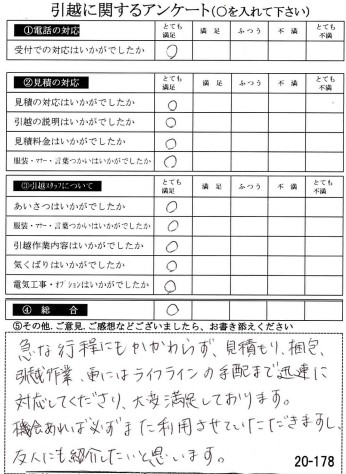 引越に関するアンケート(○を入れて下さい)
①電話の対応 とても満足 満足 ふつう 不満 とても不満
受付での対応はいかがでしたか ○
②見積の対応 とても満足 満足 ふつう 不満 とても不満
見積の対応はいかがでしたか ○
引越の説明はいかがでしたか ○
見積料金はいかがでしたか ○
服装・マナー・言葉つかいはいかがでしたか ○
③引越スタッフについて とても満足 満足 ふつう 不満 とても不満
あいさつはいかがでしたか ○
服装・マナー・言葉つかいはいかがでしたか ○
引越作業内容はいかがでしたか ○
気くばりはいかがでしたか ○
電気工事・オプションはいかがでしたか ○
④ 総合 ○
⑤その他、ご意見、ご感想などございましたら、お書き添えください
急な行程にもかかわらず、見積もり、梱包、
引越作業、更にはライフラインの手配まで迅速に
対応してくださり、大変満足しております。
機会あれば必ずまた利用させていただきますし、
友人にも紹介したいと思います。
20-178